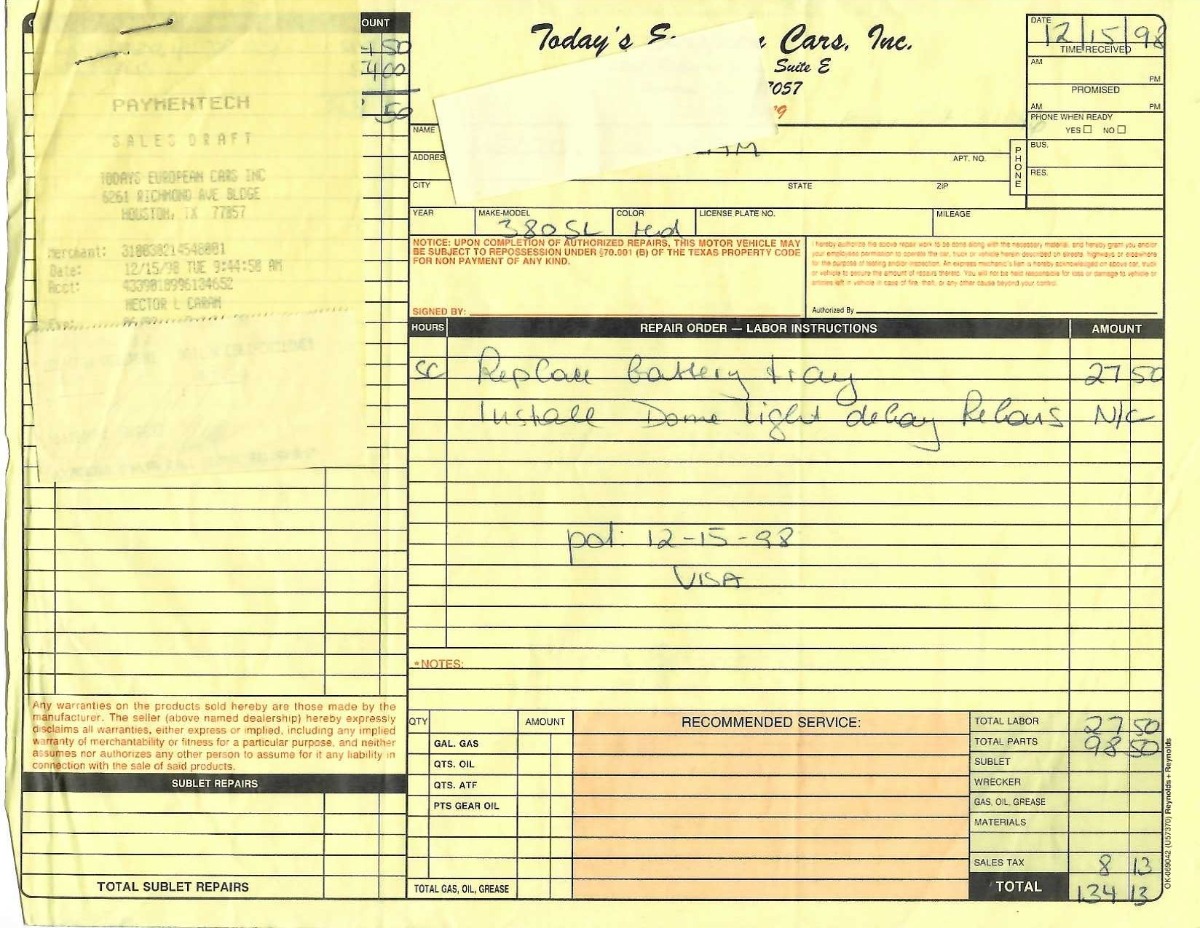 OUNT
50
400
50
PAYMENTECH
SALES DRAFT
TODAYS EUROPEAN CARS INC
6261 RICHMOND AVE BLDGE
HOUSTON, TX 77057
Merchant:
Date: 12/15/98 TUE 9:44:58 AM
Acct:
HECTOR L
Today's Cars, Inc.
Suite E
7057
9
DATE 12/15/98
TIME RECEIVED
AM PM
PROMISED
AM PM
PHONE WHEN READY
YES NO
NAME
ADDRES APT. NO.
CITY STATE ZIP
PHONE
BUS.
RES.
YEAR MAKE-MODEL COLOR LICENSE PLATE NO. MILEAGE
380SL Red
NOTICE: UPON COMPLETION OF AUTHORIZED REPAIRS, THIS MOTOR VEHICLE MAY
BE SUBJECT TO REPOSSESSION UNDER §70.001 (B) OF THE TEXAS PROPERTY CODE
FOR NON PAYMENT OF ANY KIND.
SIGNED BY:
I hereby authorize the above repair work to be done along with the necessary material, and hereby grant you and/or
your employees permission to operate the car, truck or vehicle herein described on streets, highways or elsewhere
for the purpose of testing and/or inspection. An express mechanic's lien is hereby acknowledged on above car, truck
or vehicle to secure the amount of repairs thereto. You will not be held responsible for loss or damage to vehicle or
articles left in vehicle in case of fire, theft, or any other cause beyond your control.
Authorized By
HOURS REPAIR ORDER — LABOR INSTRUCTIONS AMOUNT
SC Replace battery tray 27 50
Install Dome light delay Relais N/C
pd: 12-15-98
VISA
*NOTES:
Any warranties on the products sold hereby are those made by the
manufacturer. The seller (above named dealership) hereby expressly
disclaims all warranties, either express or implied, including any implied
warranty of merchantability or fitness for a particular purpose, and neither
assumes nor authorizes any other person to assume for it any liability in
connection with the sale of said products.
SUBLET REPAIRS
TOTAL SUBLET REPAIRS
QTY AMOUNT
GAL. GAS
QTS. OIL
QTS. ATF
PTS GEAR OIL
TOTAL GAS, OIL, GREASE
RECOMMENDED SERVICE:
TOTAL LABOR 27 50
TOTAL PARTS 98 50
SUBLET
WRECKER
GAS, OIL, GREASE
MATERIALS
SALES TAX 8 13
TOTAL 134 13
OK-069042 (U57370) Reynolds + Reynolds